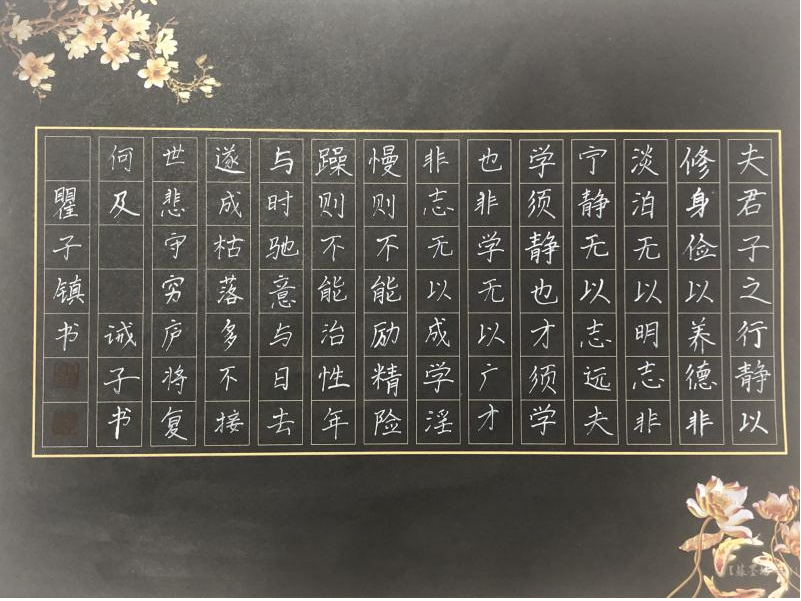 夫君子之行静以
修身俭以养德非
淡泊无以明志非
宁静无以志远夫
学须静也才须学
也非学无以广才
非志无以成学淫
慢则不能励精险
躁则不能治性年
与时驰意与日去
遂成枯落多不接
世悲守穷庐将复
何及 诫子书
瞿子镇书